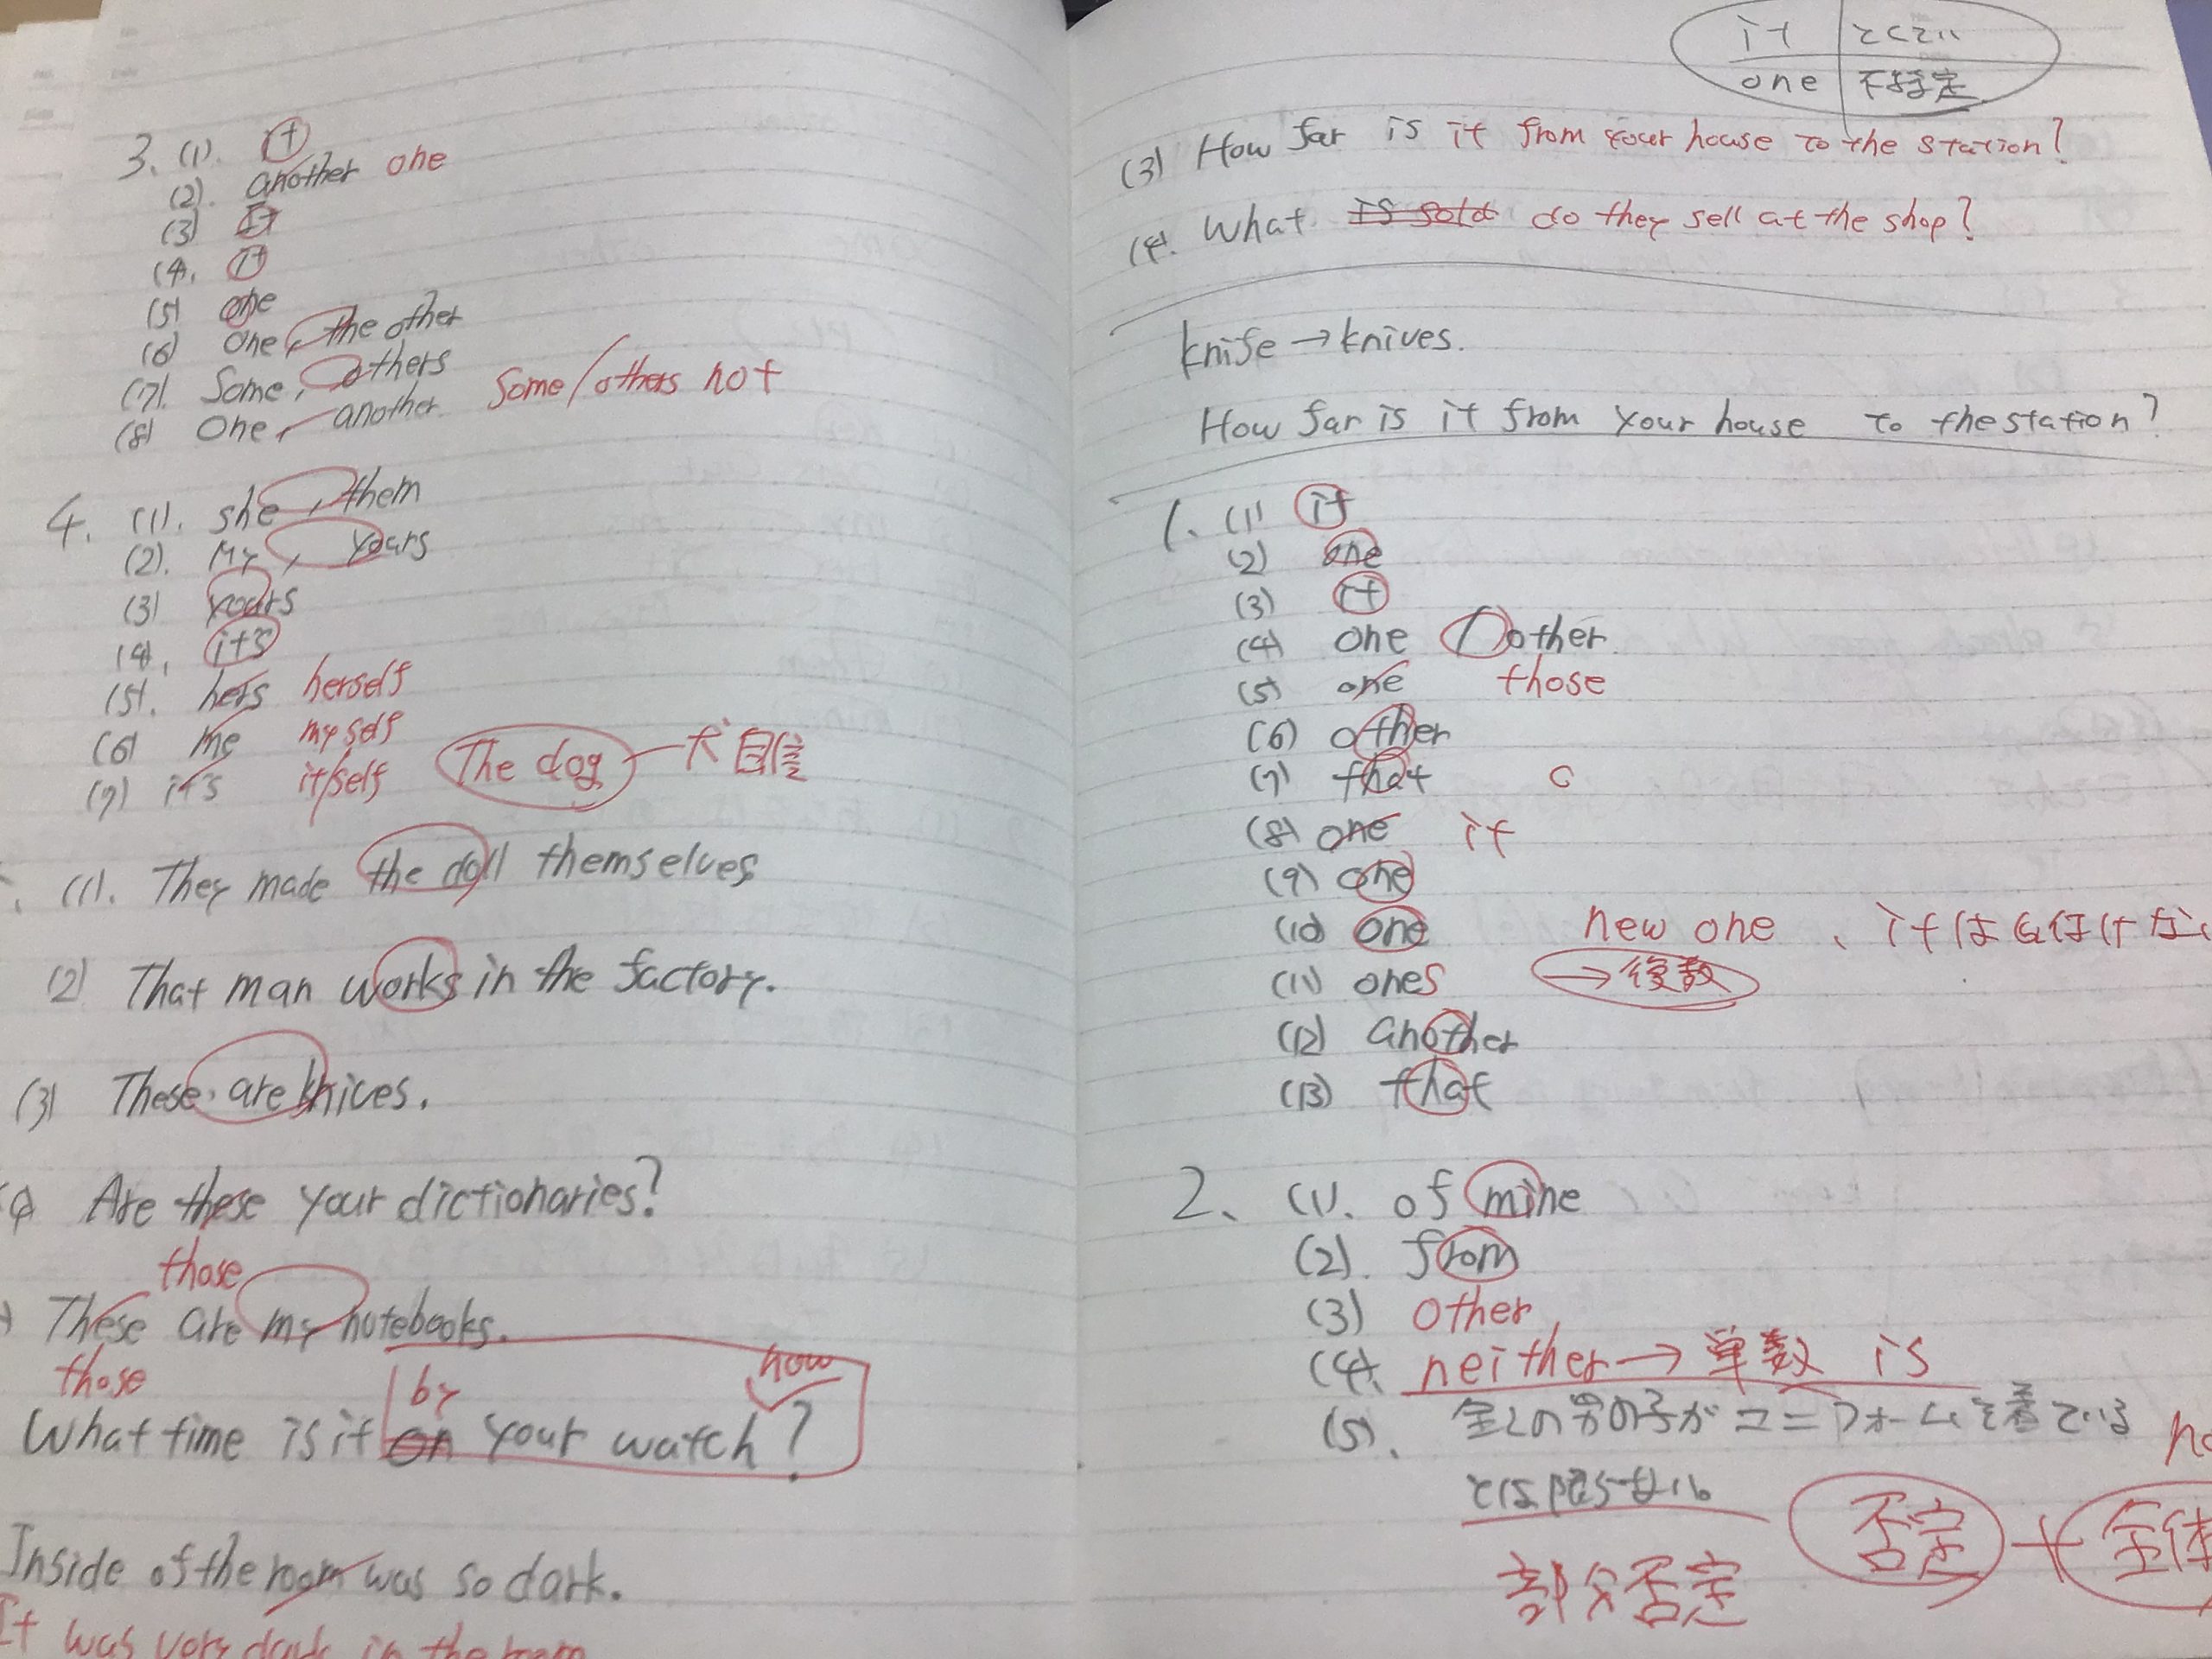 3. (1). it
(2). another one
(3) It
(4). it
(5) one
(6) One, the other
(7). Some, others
(8) One, another. Some/others not
4. (1). she, them
(2). My, yours
(3) yours
(4). its
(5). hers herself
(6) me myself
(7) it's itself The dog 犬自信
(1). They made the doll themselves
(2) That man works in the factory.
(3) These are knives.
Are these your dictionaries?
those
These are my notebooks.
those by now
What time is it on your watch?
Inside of the room was so dark.
It was very dark in the room
it とくてい
one 不特定
(3) How far is it from your house to the station?
(4). What is sold do they sell at the shop?
knife → knives.
How far is it from your house to the station?
1. (1) it
(2) one
(3) it
(4) one other
(5) one those
(6) other
(7) that
(8) one it
(9) one
(10) one new one、itは
(11) ones → 複数
(12) another
(13) that
2. (1). of mine
(2). from
(3) other
(4). neither → 単数 is
(5). 全ての男の子がユニフォームを着ている
とは限らない
部分否定 否定 + 全体